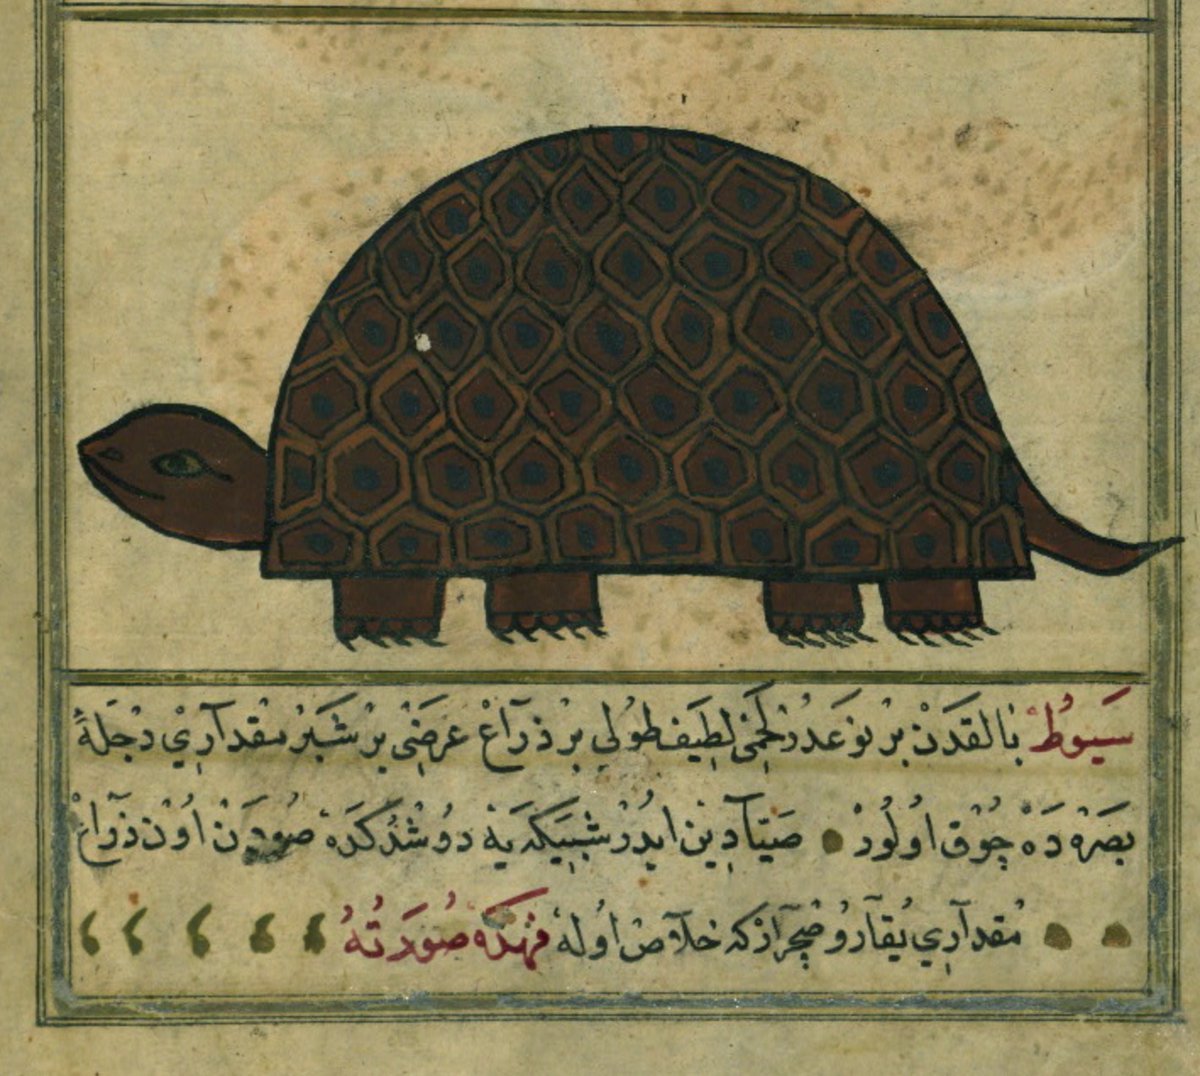 سَیوُطْ بَالقدَنْ بِرْ نوعَدُرْ لَحْمَی لطِیَف طوُلی بِرْ ذرَاعْ عرضَی بِرْ شبَرْ مقدآرِیْ دجلَهٔ
بصَرَهْ دَهْ چُوْق اوُلُورْ صَیتآدِینْ ایدُرْ شبَیَکَه یَهْ دوُشدُکدَهْ صُودَنْ اوُنْ ذرَاعْ
مُقدآرِیْ یُقآرُو صِچرَآرْ که خلآصْ اوُلهْ فهٰذَهِ صُورَتُهُ